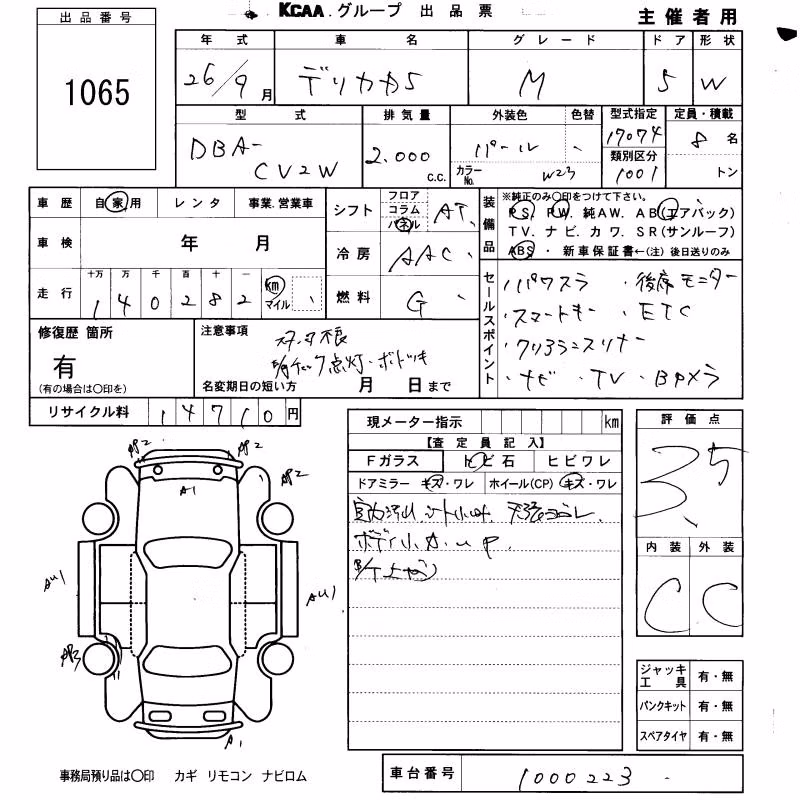 KCAA.グループ 出品票
主催者用
出品番号
1065
年式 車名 グレード ドア 形状
26/9月 デリカD5 M 5 W
型式 排気量 外装色 色替 型式指定 定員・積載
DBA-CV2W 2.000 c.c. パール 17074 8名
カラーNo. W23 類別区分 1001 トン
車歴 自家用 レンタ 事業.営業車
車検 年 月
走行 十万 万 千 百 十 一
1 4 0 2 8 2 km マイル
シフト フロア コラム パネル AT
冷房 AAC
燃料 G
装備品
※純正のみ〇印をつけて下さい。
PS. PW. 純AW. AB(エアバック)
TV. ナビ. カワ. SR(サンルーフ)
ABS ・ 新車保証書←(注) 後日送りのみ
セールスポイント
・パワスラ ・後席モニター
・スマートキー ・ETC
・クリアランスソナー
・ナビ ・TV ・Bカメラ
修復歴 箇所
有
(有の場合は〇印を)
注意事項
点灯・
名変期日の短い方 月 日まで
リサイクル料 14710円
現メーター指示 km
【査定員記入】
Fガラス トビ石 ヒビワレ
ドアミラー キズ・ワレ ホイール(CP) キズ・ワレ
ボディ小A.U P.
評価点
3.5
内装 外装
C C
AP2 AP2
AP2
A1
AU1
AU1
AP3
A1
ジャッキ工具 有・無
パンクキット 有・無
スペアタイヤ 有・無
事務局預り品は〇印 カギ リモコン ナビロム
車台番号 1000223